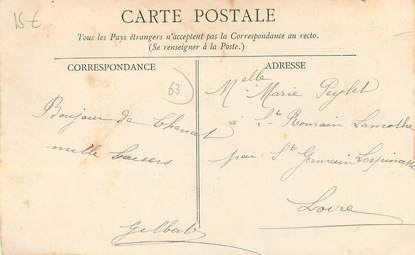 15 €
CARTE POSTALE
Tous les Pays étrangers n'acceptent pas la Correspondance au recto.
(Se renseigner à la Poste.)
CORRESPONDANCE
63
Bonjour de
mille baisers
Gilberte
ADRESSE
Melle Marie Peylet
à St Romain Lamothe
par St Germain Lespinasse
Loire